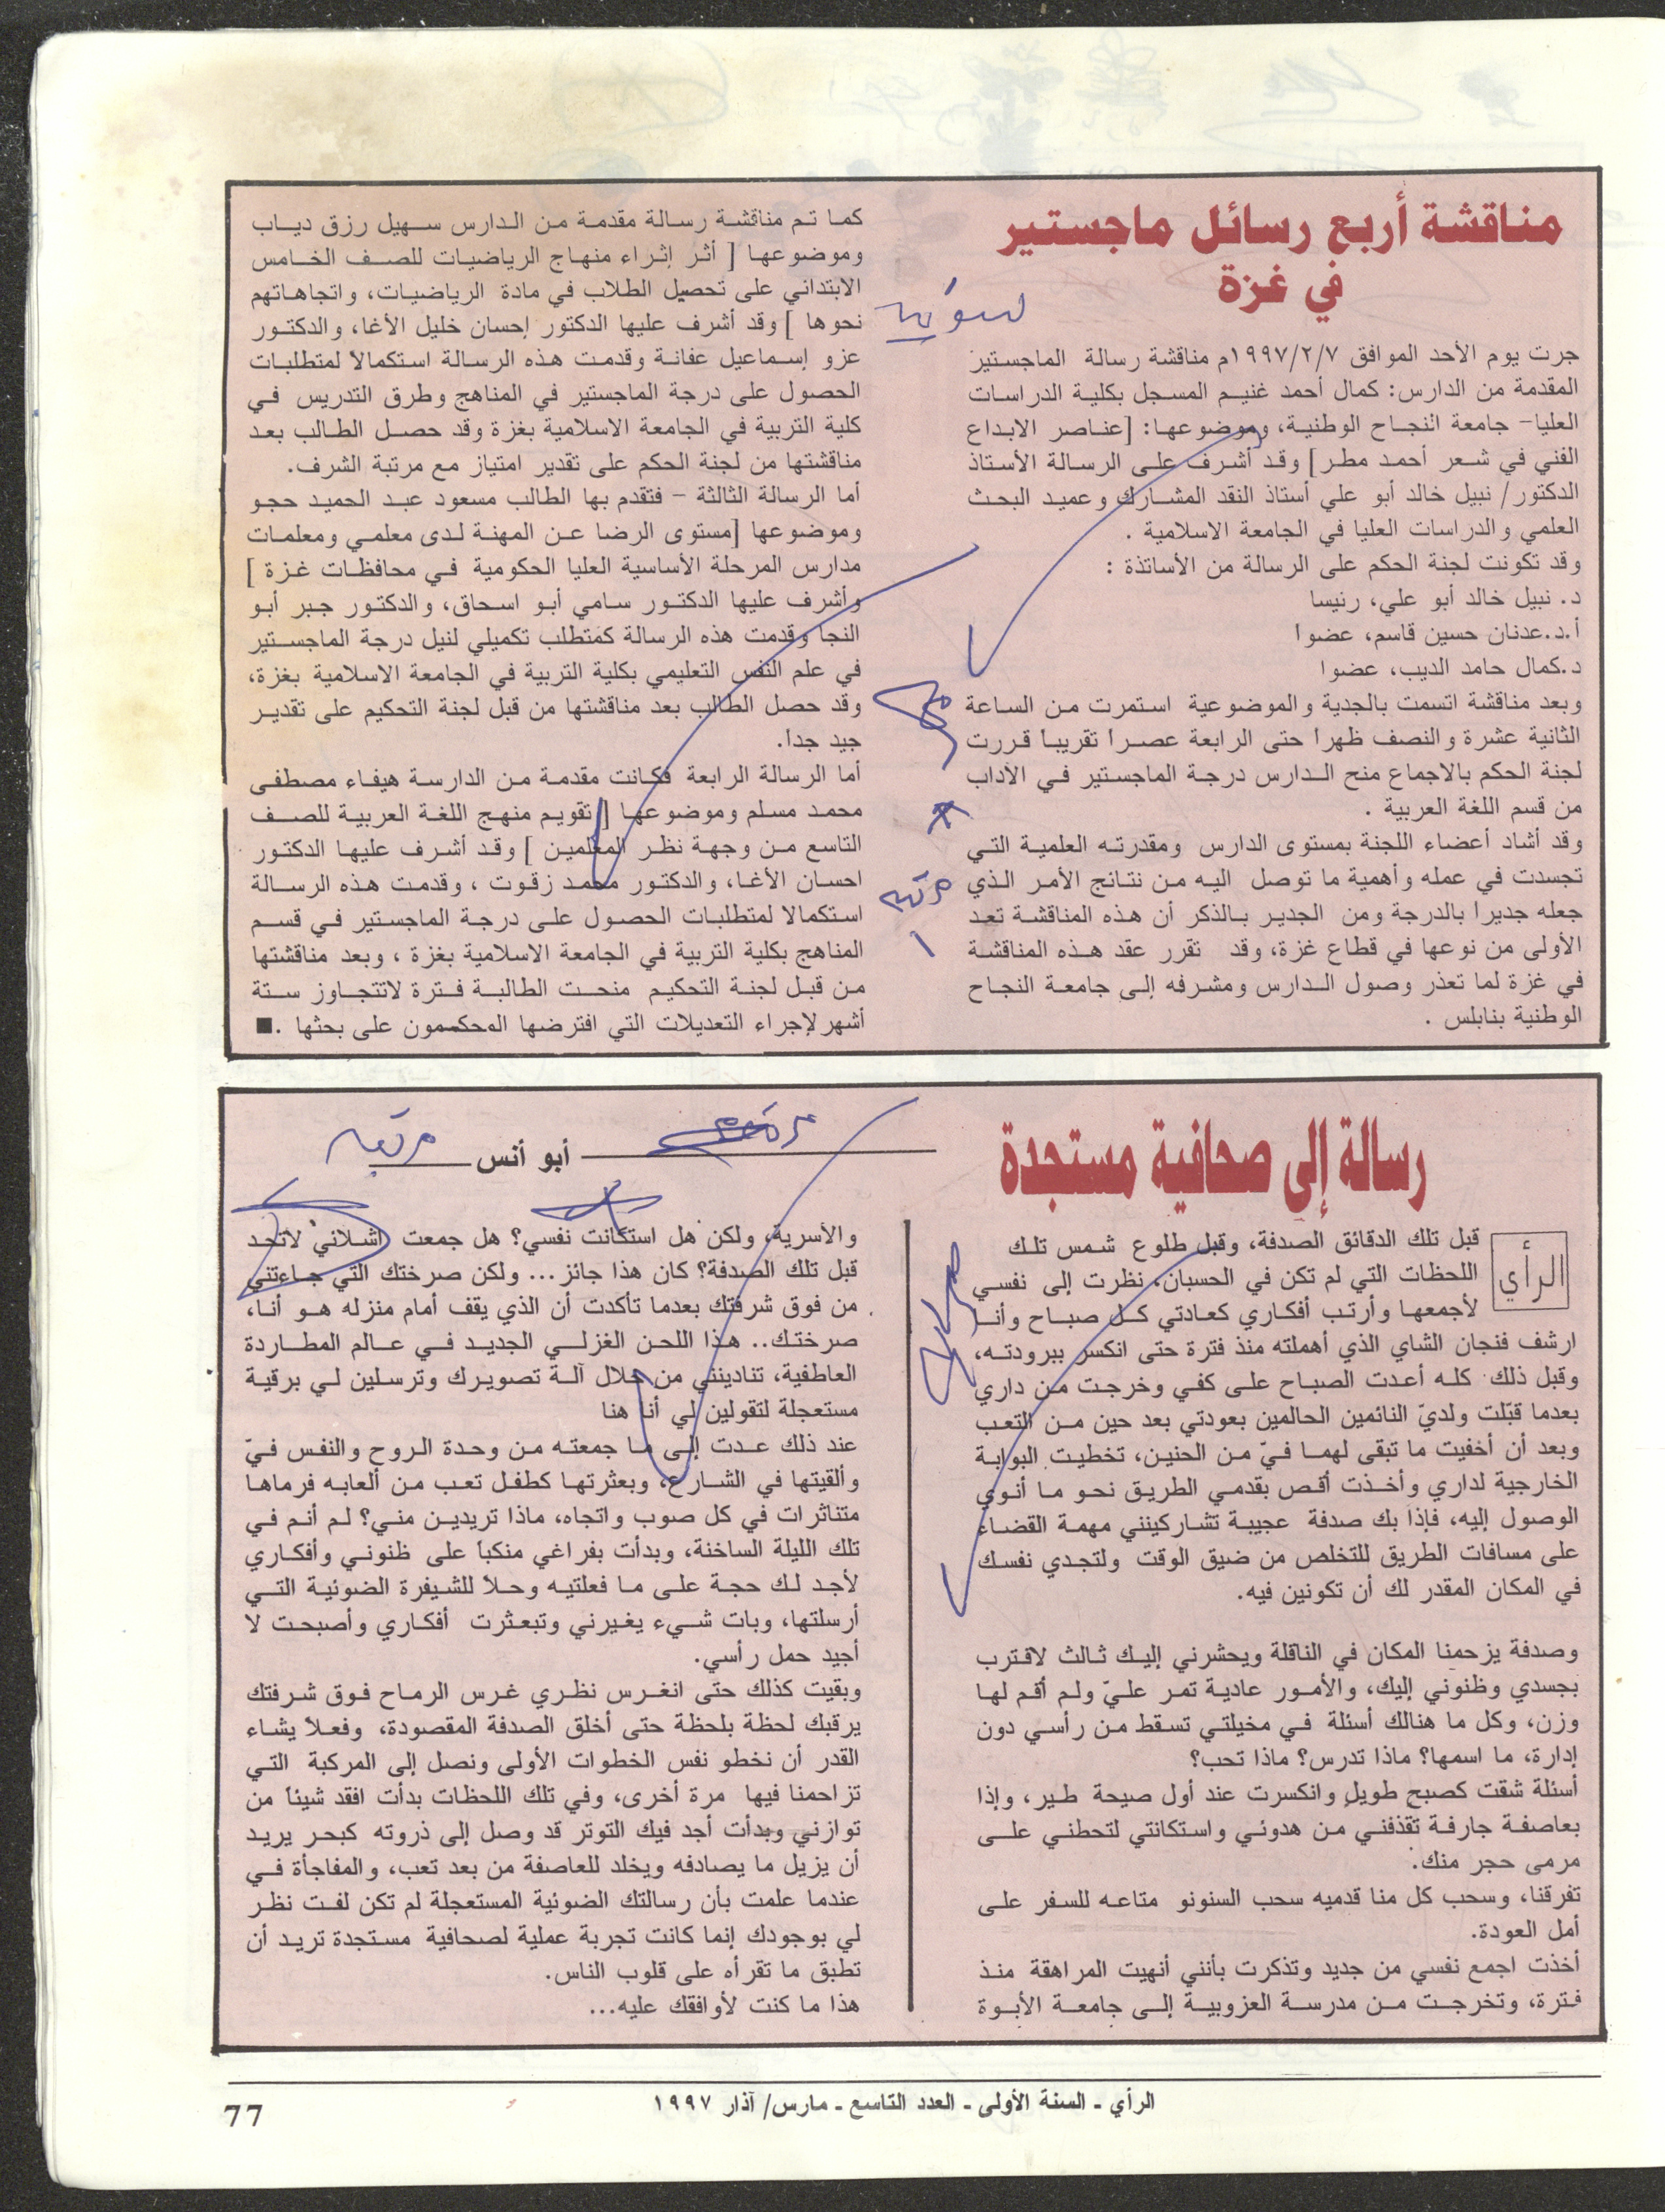 مناقشة أربع رسائل ماجستير
في غزة
جرت يوم الأحد الموافق ١٩٩٧/٢/٧م مناقشة رسالة الماجستيز
المقدمة من الدارس: كمال أحمد غنيم المسجل بكلية الدراسات
العليا- جامعة النجاح الوطنية، وموضوعها: [عناصر الابداع
الفني في شعر أحمد مطر] وقد أشرف على الرسالة الأستاذ
الدكتور/ نبيل خالد أبو علي أستاذ النقد المشارك وعميد البحث
العلمي والدراسات العليا في الجامعة الاسلامية .
وقد تكونت لجنة الحكم على الرسالة من الأساتذة :
د. نبيل خالد أبو علي، رئيسا
أ.د.عدنان حسين قاسم، عضوا
د.كمال حامد الديب، عضوا
وبعد مناقشة اتسمت بالجدية والموضوعية استمرت من الساعة
الثانية عشرة والنصف ظهرا حتى الرابعة عصرا تقريبا قررت
لجنة الحكم بالاجماع منح الدارس درجة الماجستير في الآداب
من قسم اللغة العربية .
وقد أشاد أعضاء اللجنة بمستوى الدارس ومقدرته العلمية التي
تجسدت في عمله وأهمية ما توصل اليه من نتائج الأمر الذي
جعله جديرا بالدرجة ومن الجدير بالذكر أن هذه المناقشة تعد
الأولى من نوعها في قطاع غزة، وقد تقرر عقد هذه المناقشة
في غزة لما تعذر وصول الدارس ومشرفه إلى جامعة النجاح
الوطنية بنابلس .
كما تم مناقشة رسالة مقدمة من الدارس سهيل رزق دياب
وموضوعها [ أثر إثراء منهاج الرياضيات للصف الخامس
الابتدائي على تحصيل الطلاب في مادة الرياضيات، واتجاهاتهم
نحوها ] وقد أشرف عليها الدكتور إحسان خليل الأغا، والدكتور
عزو إسماعيل عفانة وقدمت هذه الرسالة استكمالا لمتطلبات
الحصول على درجة الماجستير في المناهج وطرق التدريس في
كلية التربية في الجامعة الاسلامية بغزة وقد حصل الطالب بعد
مناقشتها من لجنة الحكم على تقدير امتياز مع مرتبة الشرف.
أما الرسالة الثالثة - فتقدم بها الطالب مسعود عبد الحميد حجو
وموضوعها [مستوى الرضا عن المهنة لدى معلمي ومعلمات
مدارس المرحلة الأساسية العليا الحكومية في محافظات غزة ]
وأشرف عليها الدكتور سامي أبو اسحاق، والدكتور جبر أبو
النجا وقدمت هذه الرسالة كمتطلب تكميلي لنيل درجة الماجستير
في علم النفس التعليمي بكلية التربية في الجامعة الاسلامية بغزة،
وقد حصل الطالب بعد مناقشتها من قبل لجنة التحكيم على تقدير
جيد جدا.
أما الرسالة الرابعة فكانت مقدمة من الدارسة هيفاء مصطفى
محمد مسلم وموضوعها [ تقويم منهج اللغة العربية للصف
التاسع من وجهة نظر المعلمين ] وقد أشرف عليها الدكتور
احسان الأغا، والدكتور محمد زقوت ، وقدمت هذه الرسالة
استكمالا لمتطلبات الحصول على درجة الماجستير في قسم
المناهج بكلية التربية في الجامعة الاسلامية بغزة ، وبعد مناقشتها
من قبل لجنة التحكيم منحت الطالبة فترة لاتتجاوز ستة
أشهر لإجراء التعديلات التي افترضها المحكمون على بحثها .■
رسالة إلى صحافية مستجدة
أبو أنس
الرأي
قبل تلك الدقائق الصدفة، وقبل طلوع شمس تلك
اللحظات التي لم تكن في الحسبان، نظرت إلى نفسي
لأجمعها وأرتب أفكاري كعادتي كل صباح وأنا
ارشف فنجان الشاي الذي أهملته منذ فترة حتى انكسر ببرودته،
وقبل ذلك كله أعدت الصباح على كفي وخرجت من داري
بعدما قبّلت ولديّ النائمين الحالمين بعودتي بعد حين من التعب
وبعد أن أخفيت ما تبقى لهما فيّ من الحنين، تخطيت البوابة
الخارجية لداري وأخذت أقص بقدمي الطريق نحو ما أنوي
الوصول إليه، فإذا بك صدفة عجيبة تشاركينني مهمة القضاء
على مسافات الطريق للتخلص من ضيق الوقت ولتجدي نفسك
في المكان المقدر لك أن تكونين فيه.
وصدفة يزحمنا المكان في الناقلة ويحشرني إليك ثالث لاقترب
بجسدي وظنوني إليك، والأمور عادية تمر عليّ ولم أقم لها
وزن، وكل ما هنالك أسئلة في مخيلتي تسقط من رأسي دون
إدارة، ما اسمها؟ ماذا تدرس؟ ماذا تحب؟
أسئلة شقت كصبح طويل وانكسرت عند أول صيحة طير، وإذا
بعاصفة جارفة تقذفني من هدوئي واستكانتي لتحطني على
مرمى حجر منك.
تفرقنا، وسحب كل منا قدميه سحب السنونو متاعه للسفر على
أمل العودة.
أخذت اجمع نفسي من جديد وتذكرت بأنني أنهيت المراهقة منذ
فترة، وتخرجت من مدرسة العزوبية إلى جامعة الأبوة
والأسرية، ولكن هل استكانت نفسي؟ هل جمعت أشلائي لاتحد
قبل تلك الصدفة؟ كان هذا جائز... ولكن صرختك التي جاءتني
من فوق شرفتك بعدما تأكدت أن الذي يقف أمام منزله هو أنا،
صرختك.. هذا اللحن الغزلي الجديد في عالم المطاردة
العاطفية، تنادينني من خلال آلة تصويرك وترسلين لي برقية
مستعجلة لتقولين لي أنا هنا
عند ذلك عدت إلى ما جمعته من وحدة الروح والنفس فيّ
وألقيتها في الشارع، وبعثرتها كطفل تعب من ألعابه فرماها
متناثرات في كل صوب واتجاه، ماذا تريدين مني؟ لم أنم في
تلك الليلة الساخنة، وبدأت بفراغي منكباً على ظنوني وأفكاري
لأجد لك حجة على ما فعلتيه وحلاً للشيفرة الضوئية التي
أرسلتها، وبات شيء يغيرني وتبعثرت أفكاري وأصبحت لا
أجيد حمل رأسي.
وبقيت كذلك حتى انغرس نظري غرس الرماح فوق شرفتك
يرقبك لحظة بلحظة حتى أخلق الصدفة المقصودة، وفعلاً يشاء
القدر أن نخطو نفس الخطوات الأولى ونصل إلى المركبة التي
تزاحمنا فيها مرة أخرى، وفي تلك اللحظات بدأت افقد شيئاً من
توازني وبدأت أجد فيك التوتر قد وصل إلى ذروته كبحر يريد
أن يزيل ما يصادفه ويخلد للعاصفة من بعد تعب، والمفاجأة في
عندما علمت بأن رسالتك الضوئية المستعجلة لم تكن لفت نظر
لي بوجودك إنما كانت تجربة عملية لصحافية مستجدة تريد أن
تطبق ما تقرأه على قلوب الناس.
هذا ما كنت لأوافقك عليه...
الرأي ـ السنة الأولى ـ العدد التاسع ـ مارس/ آذار ١٩٩٧
77